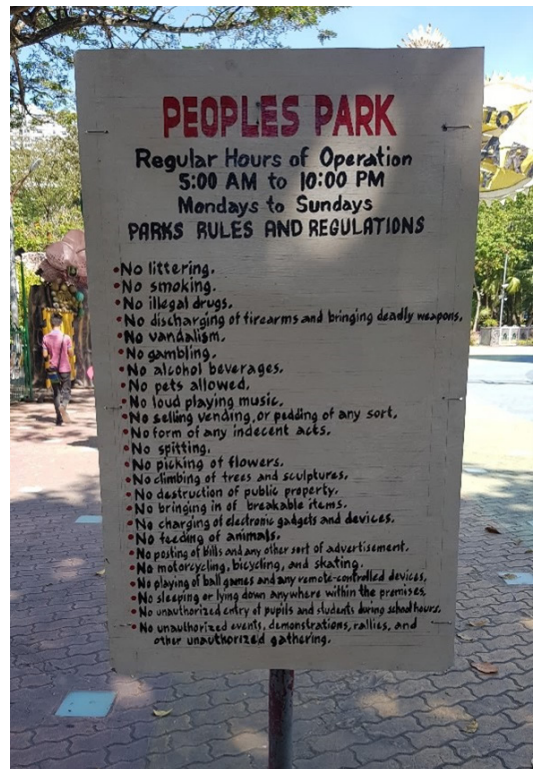 PEOPLES PARK
Regular Hours of Operation
5:00 AM to 10:00 PM
Mondays to Sundays
PARKS RULES AND REGULATIONS
•No littering.
•No smoking.
•No illegal drugs.
•No discharging of firearms and bringing deadly weapons.
•No vandalism.
•No gambling.
•No alcohol beverages.
•No pets allowed.
•No loud playing music.
•No selling vending, or pedding of any sort.
•No form of any indecent acts.
•No spitting.
•No picking of flowers.
•No climbing of trees and sculptures.
•No destruction of public property.
•No bringing in of breakable items.
•No charging of electronic gadgets and devices.
•No feeding of animals.
•No posting of bills and any other sort of advertisement.
•No motorcycling, bicycling, and skating.
•No playing of ball games and any remote-controlled devices.
•No sleeping or lying down anywhere within the premises.
•No unauthorized entry of pupils and students during school hours.
•No unauthorized events, demonstrations, rallies, and
other unauthorized gathering.